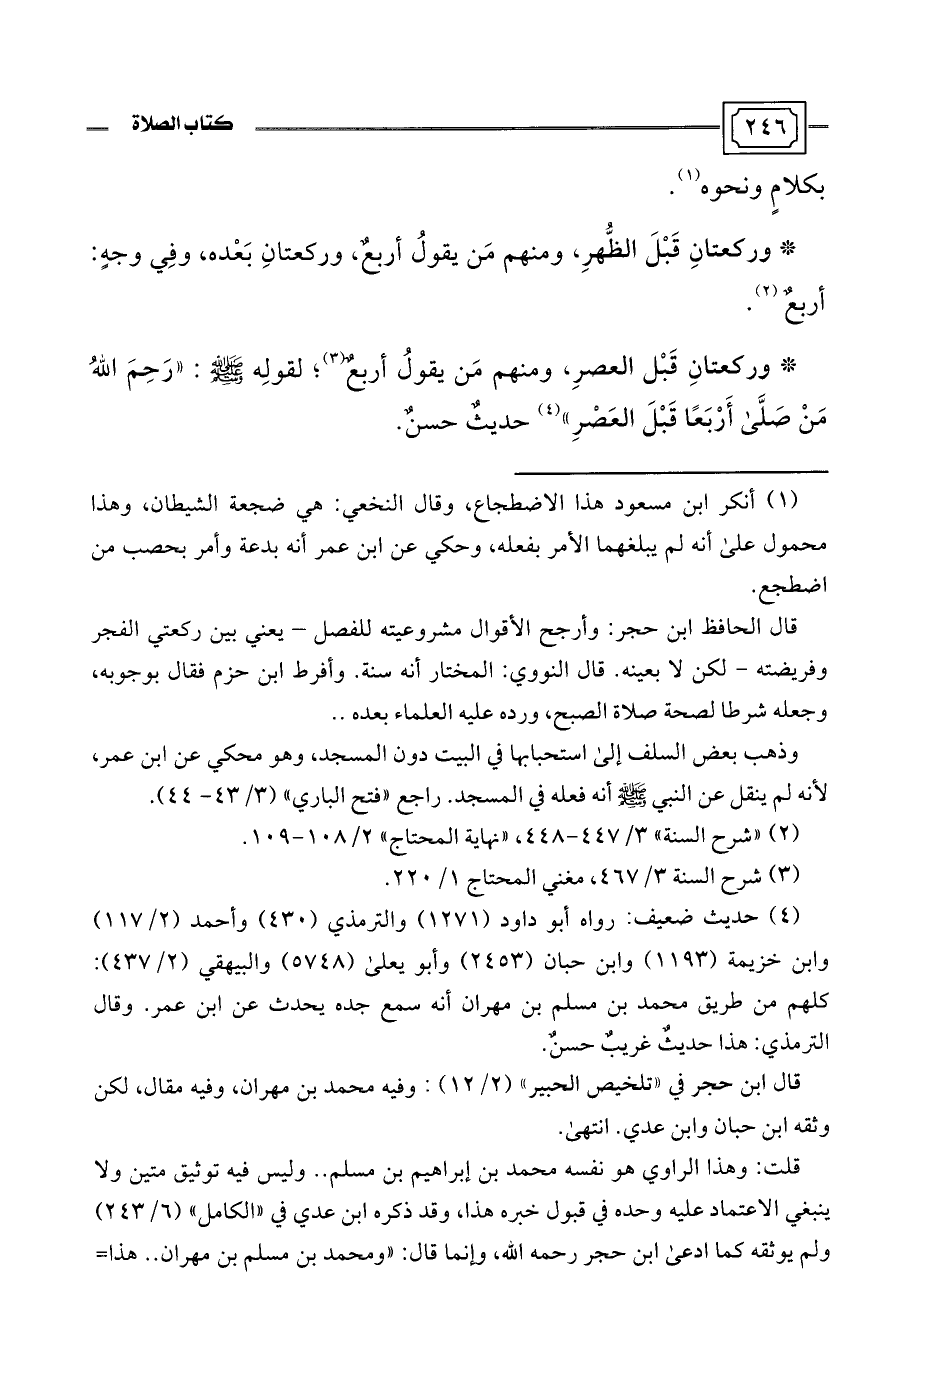 ٢٤٦ كتاب الصلاة
بكلامٍ ونحوه(١).
* وركعتانِ قَبْلَ الظُّهرِ، ومنهم مَن يقولُ أربعٌ، وركعتانِ بَعْده، وفِي وجهٍ:
أربعٌ(٢).
* وركعتانِ قَبْل العصرِ، ومنهم مَن يقولُ أربعٌ(٣)؛ لقولِه ﷺ : «رَحِمَ اللهُ
مَنْ صَلَّىٰ أَرْبَعًا قَبْلَ العَصْرِ»(٤) حديثٌ حسنٌ.
(١) أنكر ابن مسعود هذا الاضطجاع، وقال النخعي: هي ضجعة الشيطان، وهذا
محمول علىٰ أنه لم يبلغهما الأمر بفعله، وحكي عن ابن عمر أنه بدعة وأمر بحصب من
اضطجع.
قال الحافظ ابن حجر: وأرجح الأقوال مشروعيته للفصل – يعني بين ركعتي الفجر
وفريضته – لكن لا بعينه. قال النووي: المختار أنه سنة. وأفرط ابن حزم فقال بوجوبه،
وجعله شرطا لصحة صلاة الصبح، ورده عليه العلماء بعده ..
وذهب بعض السلف إلىٰ استحبابها في البيت دون المسجد، وهو محكي عن ابن عمر،
لأنه لم ينقل عن النبي ﷺ أنه فعله في المسجد. راجع «فتح الباري» (٣/ ٤٣- ٤٤).
(٢) «شرح السنة» ٣/ ٤٤٧-٤٤٨، «نهاية المحتاج» ٢/ ١٠٨-١٠٩.
(٣) شرح السنة ٣/ ٤٦٧، مغني المحتاج ١/ ٢٢٠.
(٤) حديث ضعيف: رواه أبو داود (١٢٧١) والترمذي (٤٣٠) وأحمد (٢/ ١١٧)
وابن خزيمة (١١٩٣) وابن حبان (٢٤٥٣) وأبو يعلىٰ (٥٧٤٨) والبيهقي (٢/ ٤٣٧):
كلهم من طريق محمد بن مسلم بن مهران أنه سمع جده يحدث عن ابن عمر. وقال
الترمذي: هذا حديثٌ غريبٌ حسنٌ.
قال ابن حجر في «تلخيص الحبير» (٢/ ١٢) : وفيه محمد بن مهران، وفيه مقال، لكن
وثقه ابن حبان وابن عدي. انتهىٰ.
قلت: وهذا الراوي هو نفسه محمد بن إبراهيم بن مسلم.. وليس فيه توثيق متين ولا
ينبغي الاعتماد عليه وحده في قبول خبره هذا، وقد ذكره ابن عدي في «الكامل» (٦/ ٢٤٣)
ولم يوثقه كما ادعىٰ ابن حجر رحمه الله، وإنما قال: «ومحمد بن مسلم بن مهران.. هذا=